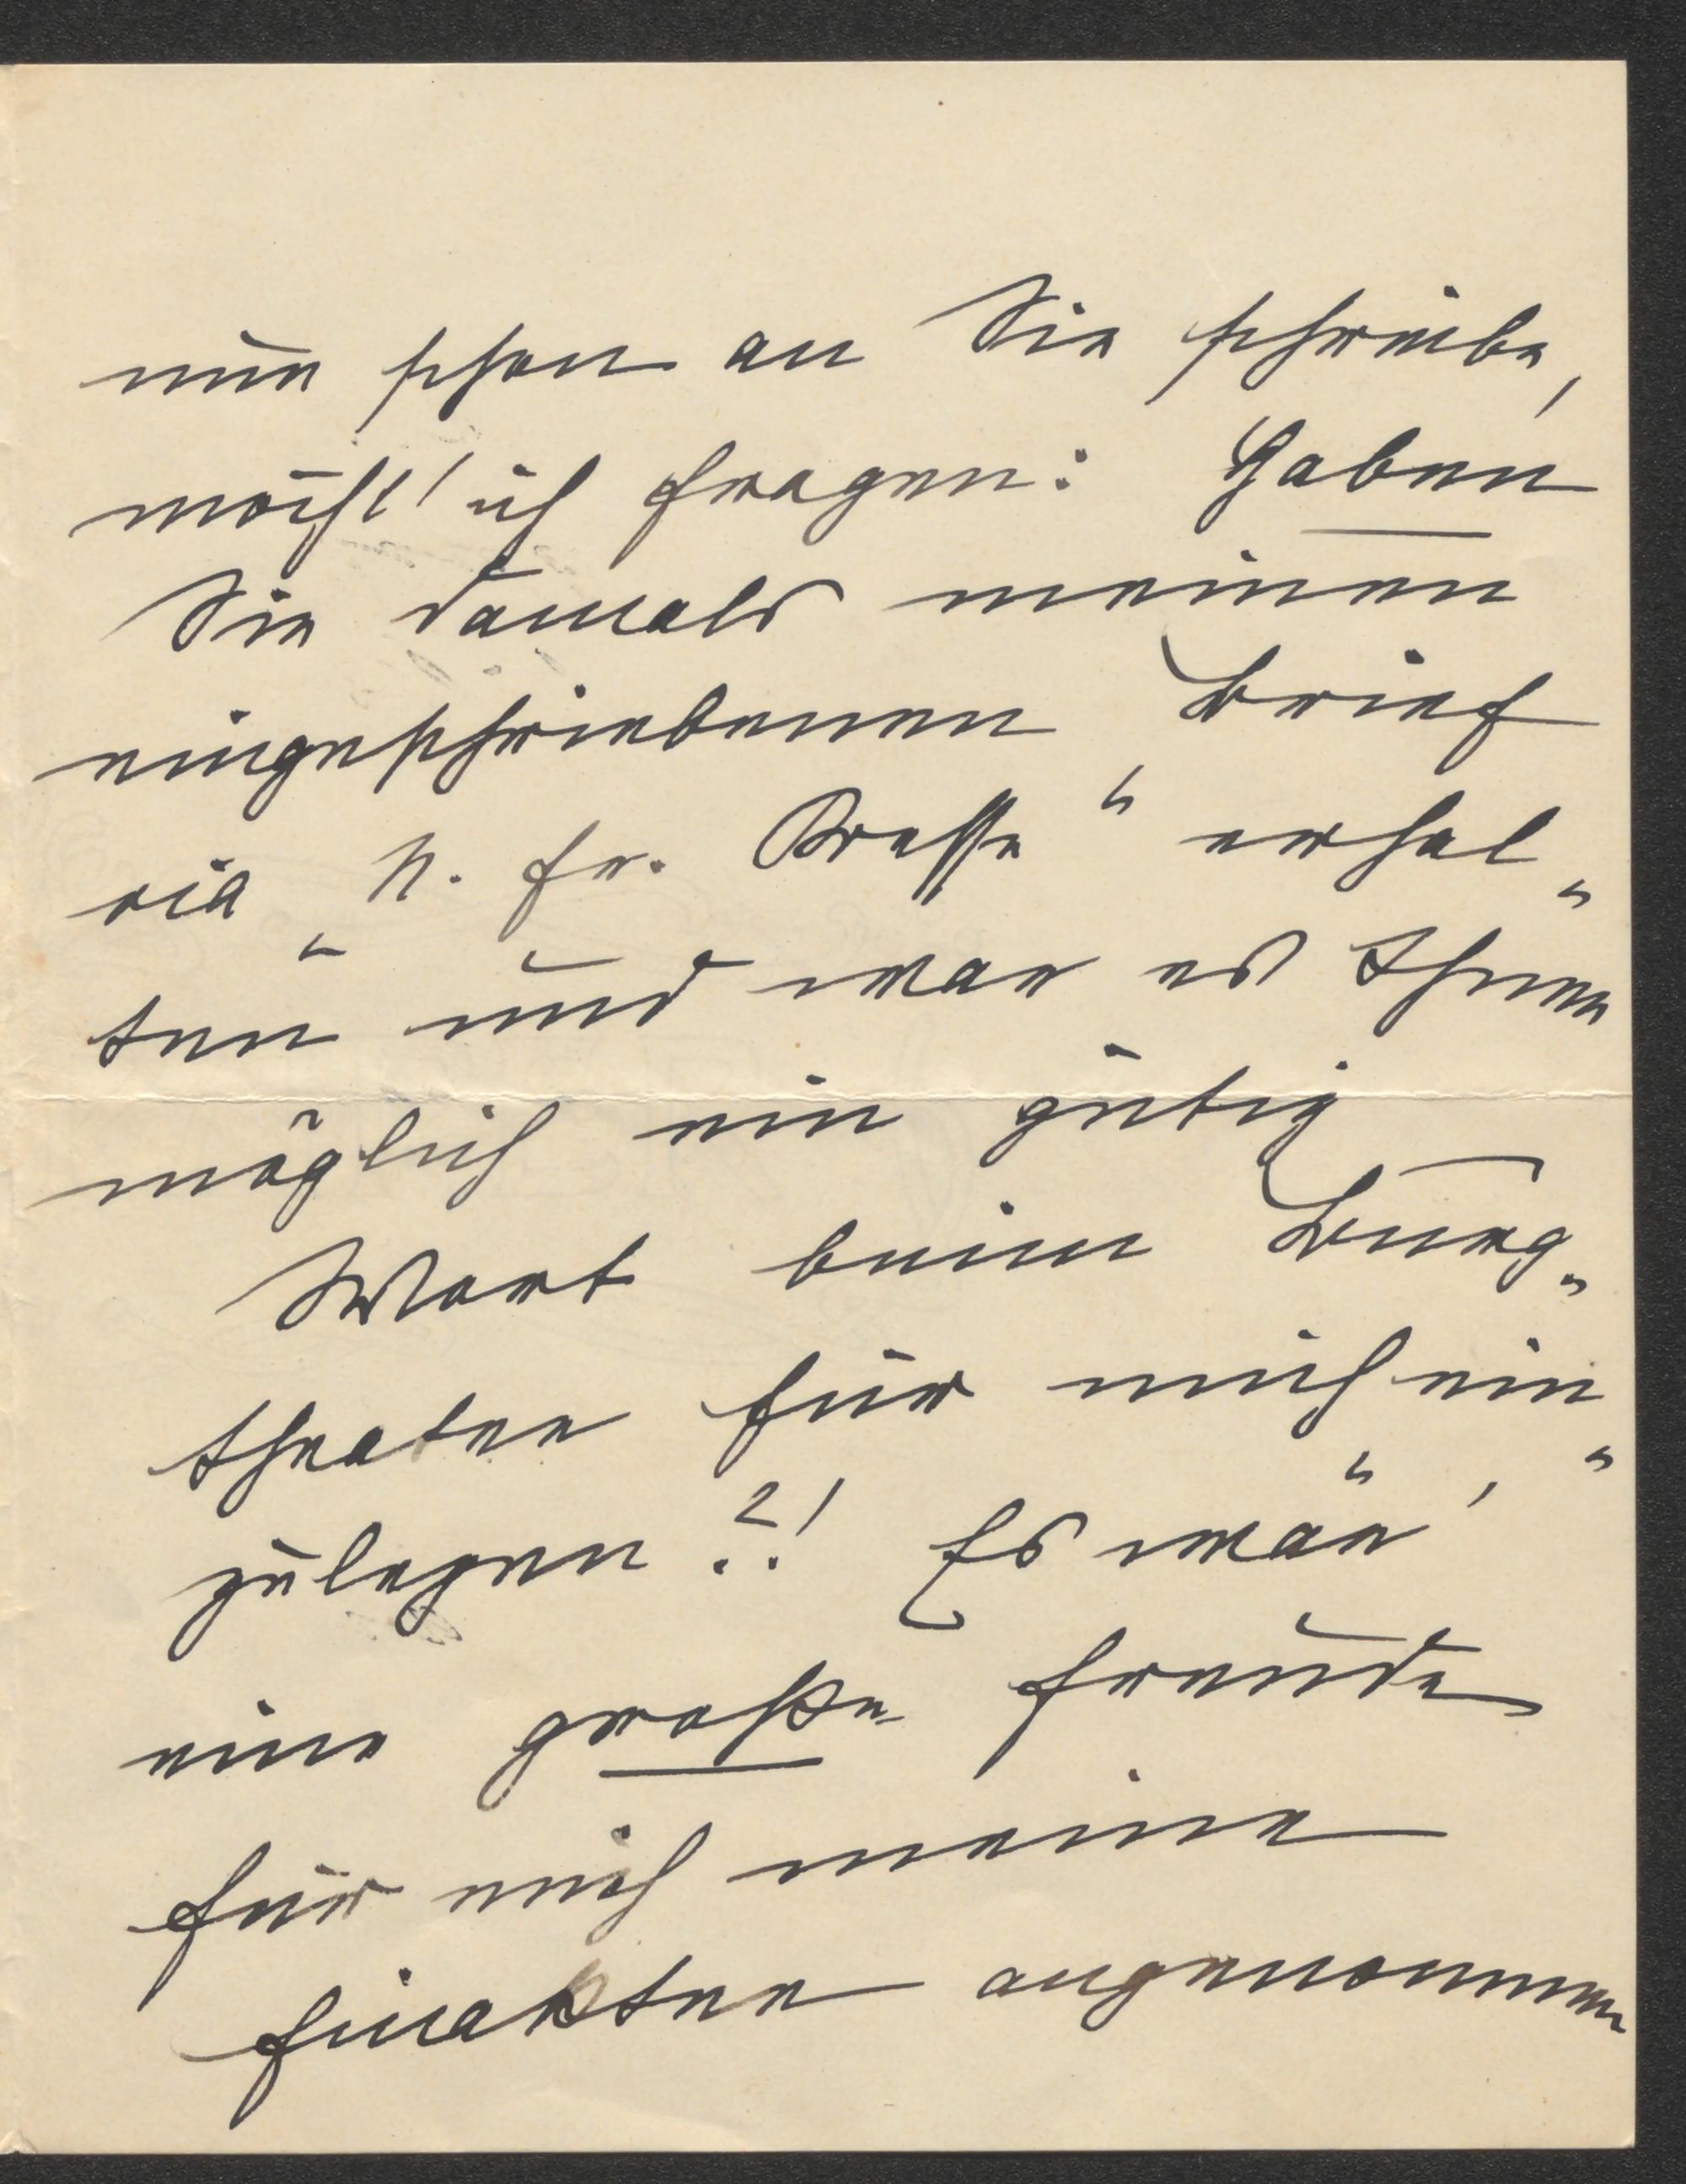 nun schon an Sie schreibe,
möcht' ich fragen: Haben
Sie damals meinen
eingeschriebenen Brief
via „N. Fr. Presse“ erhal„
ten und war es Ihnen
möglich ein gütig
Wort beim Burg„
theater für mich ein„
zulegen?! Es wär',
eine große Freude
für mich meine
Einakter angenommen